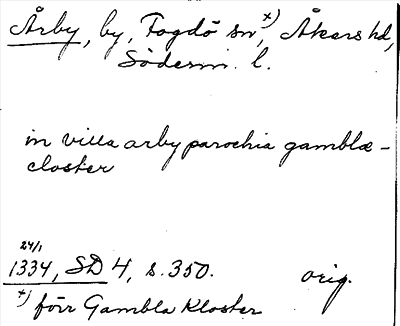 Årby, by, Fogdö sn, x) Åkers hd,
Söderm. l.
in villa arby parochia gamblæ-
closter
24/1
1334, SD 4, s. 350. orig.
x) förr Gambla Kloster